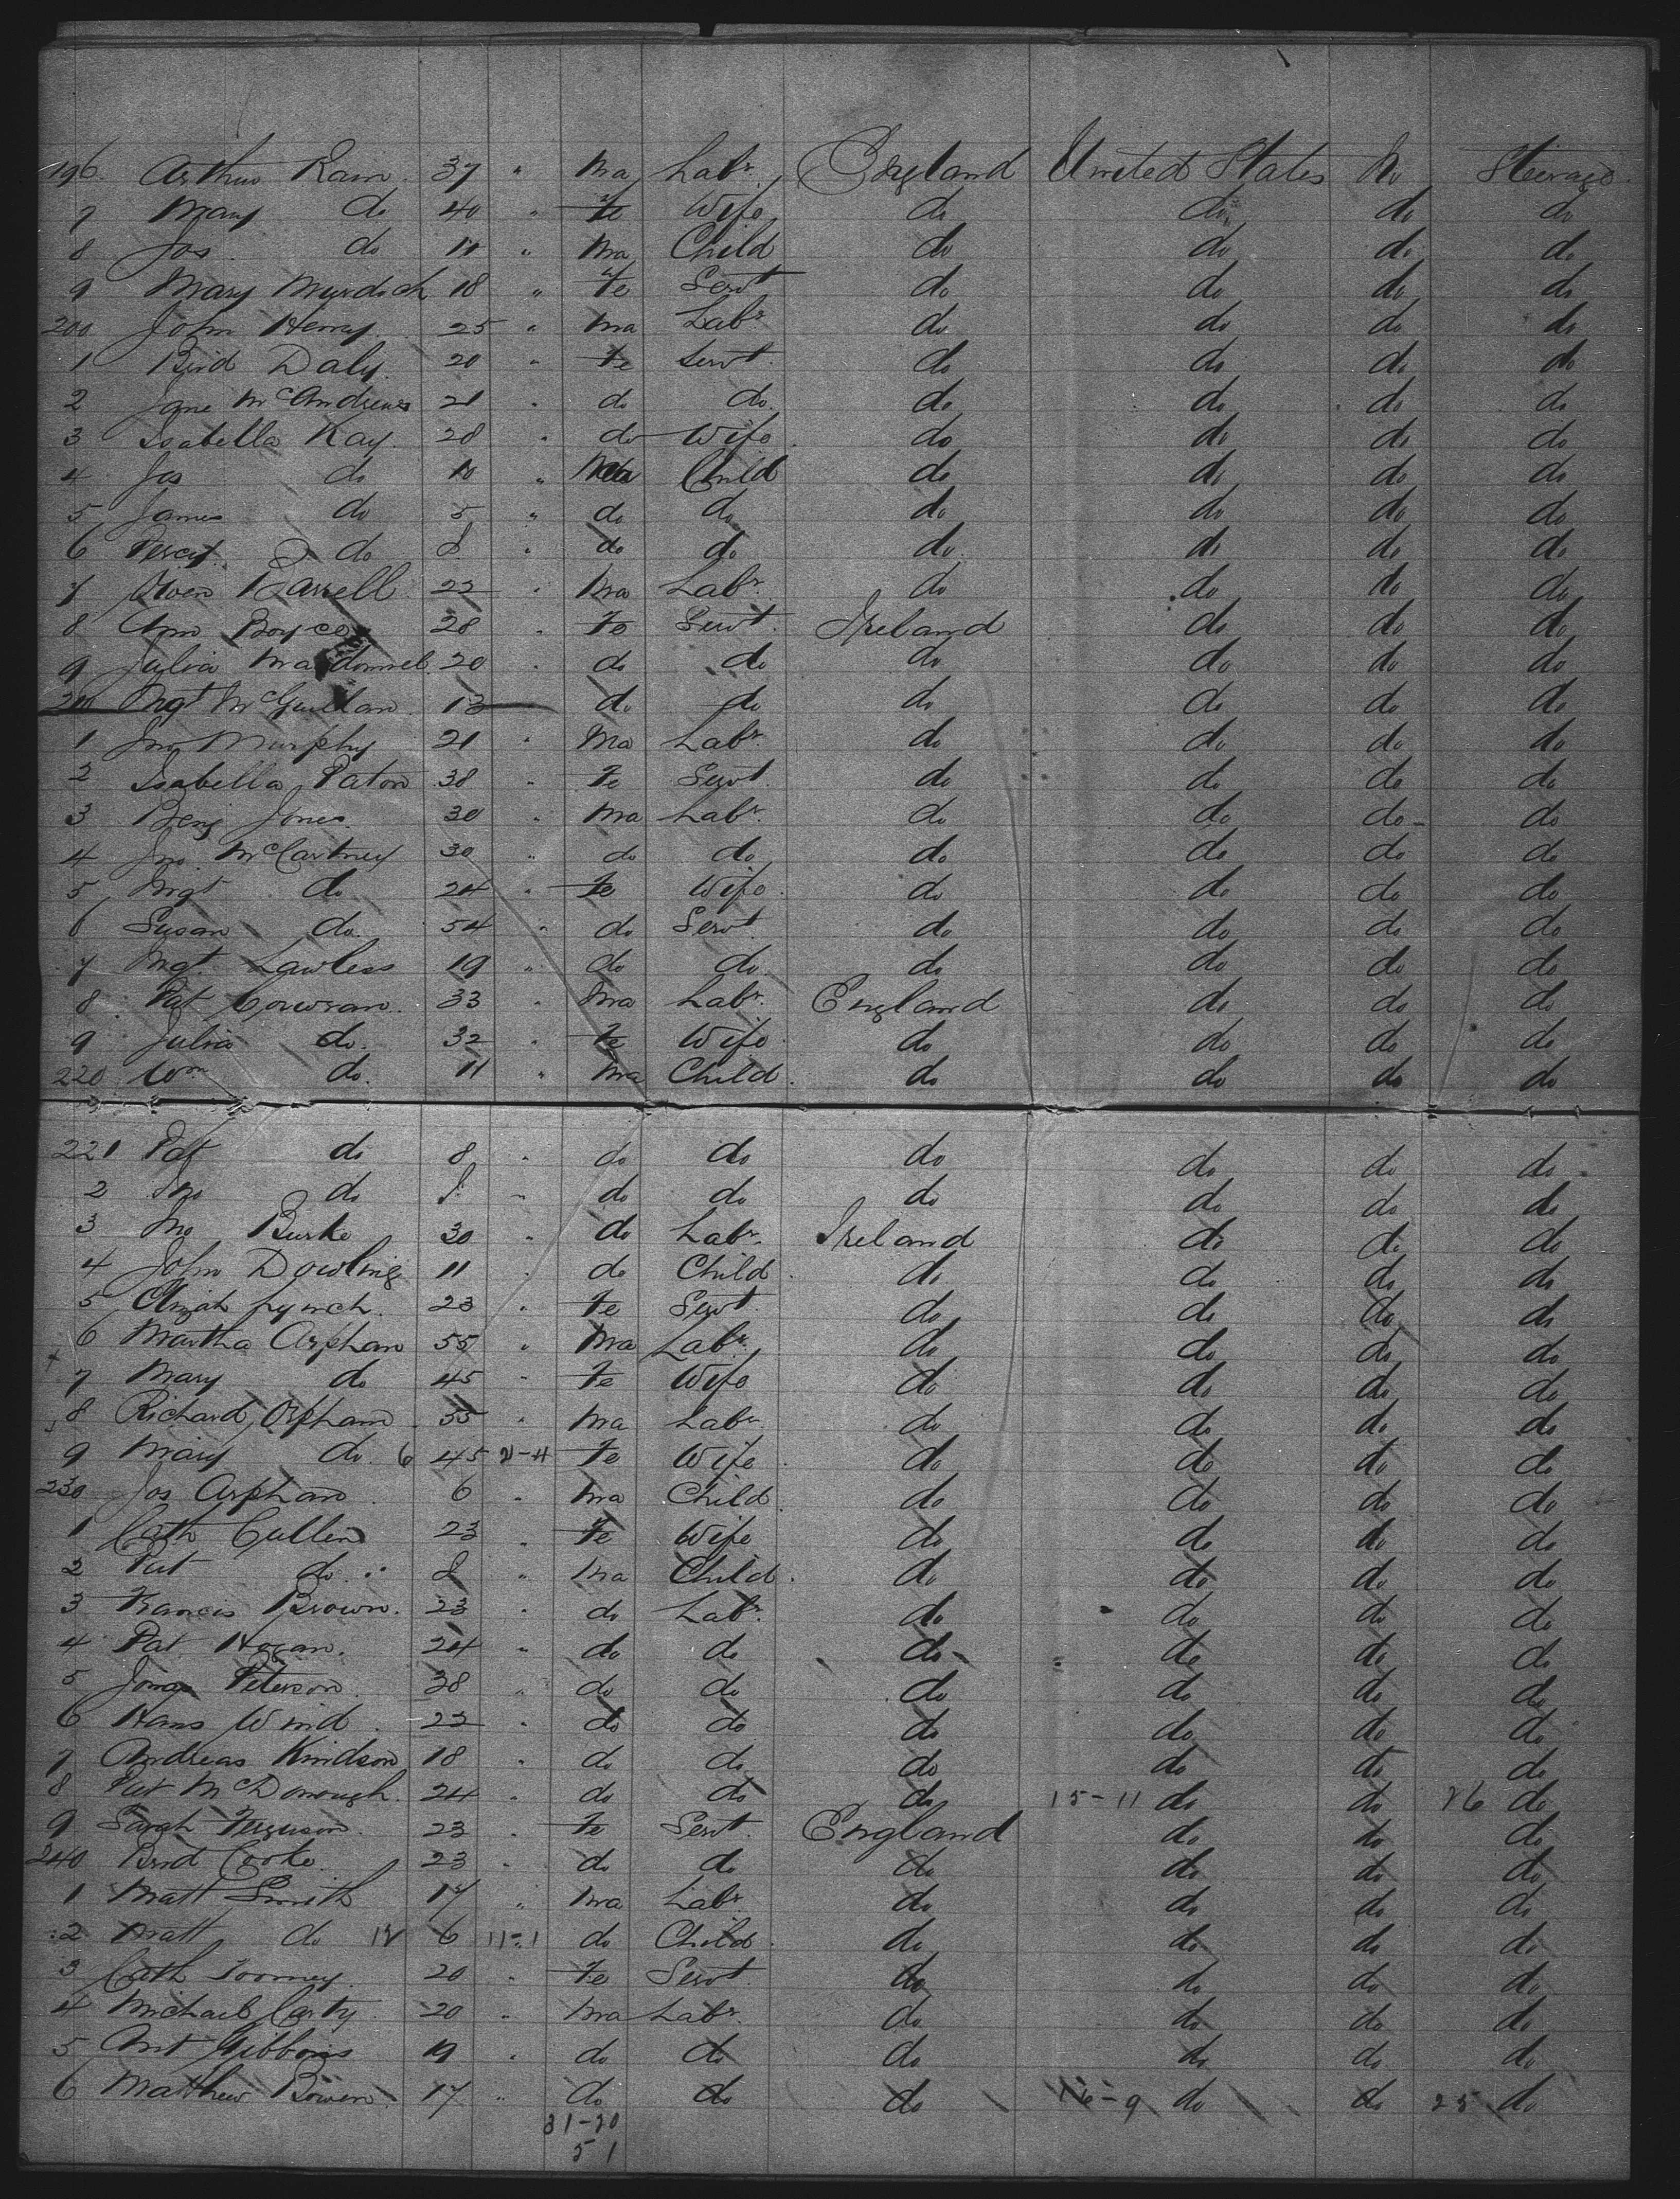 196 Arthur Kain 37 " Ma Labr. England United States No Steerage
7 Mary do 40 " Fe Wife do do do do
8 Jos do 11 " Ma Child do do do do
9 Mary Murdoch 18 " Fe Servt do do do do
200 John Henry 25 " Ma Labr do do do do
1 Brid Daly 20 " Fe Servt do do do do
2 Jane McAndrews 21 " do do do do do do
3 Isabella Kay 28 " do Wife do do do do
4 Jos do 10 " Ma Child do do do do
5 James do 5 " do do do do do do
6 Percy do 8 " do do do do do do
7 Owen Farrell 22 " Ma Labr. do do do do
8 Ann Boyce 28 " Fe Servt. Ireland do do do
9 Julia Macdonnel 20 " do do do do do do
210 Mgt McQuillan 13 do do do do do do
1 Jno Murphy 21 " Ma Labr. do do do do
2 Isabella Paton 38 " Fe Servt do do do do
3 Benj Jones 30 " Ma Labr. do do do do
4 Jno. McCartney 30 " do do do do do do
5 Mgt do 24 " Fe Wife do do do do
6 Susan do. 54 " do Servt do do do do
7 Mgt. Lawless 19 " do do. do do do do
8 Pat Corcoran 33 " Ma Labr. England do do do
9 Julia do. 32 " Fe Wife do do do do
220 Wm do. 11 " Ma Child do do do do
221 Pat do 8 " do do do do do do
2 Jno do 8 " do do do do do do
3 Jno Burke 30 " do Labr. Ireland do do do
4 John Dowling 11 " do Child do do do do
5 Elizah Lynch 23 " Fe Servt. do do do do
6 Martha Orphan 55 " Ma Labr. do do do do
7 Mary do 45 " Fe Wife do do do do
8 Richard Orphan 55 " Ma Labr do do do do
9 Mary do. 6 45 21-4 Fe Wife do do do do
230 Jos Orphan 6 " Ma Child do do do do
1 Cath Cullen 23 " Fe Wife do do do do
2 Pat do 8 " Ma Child do do do do
3 Francis Brown. 23 " do Labr. do do do do
4 Pat Hogan. 24 " do do do do do do
5 Jonas Peterson 38 " do do do do do do
6 Hans Wind 22 " do do do do do do
7 Andreas Knudson 18 " do do do do do do
8 Pat McDonough. 24 " do do do 15-11 do do 26 do
9 Sarah Ferguson 23 " Fe Servt. England do do do
240 Brid Cooke 23 " do do do do do do
1 Matt Smith 17 " Ma Labr do do do do
2 Matt do 12 6 11-1 do Child do do do do
3 Cath Toomey. 20 " Fe Servt. do do do do
4 Michael Carty 20 " Ma Labr do do do do
5 Ant Gibbons 19 " do do do do do do
6 Matthew Bowen 17 " do do do 16-9 do do 25 do
31-20
51